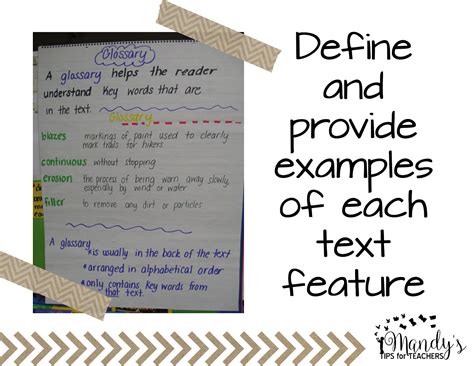 Glossary
A glossary helps the reader
understand key words that are
in the text.
Glossary
blazes markings of paint used to clearly
mark trails for hikers.
continuous without stopping
erosion the process of being worn away slowly,
especially by wind or water
filter to remove any dirt or particles
A glossary
*is usually in the back of the text
*arranged in alphabetical order
*only contains key words from
that text.
Define
and
provide
examples
of each
text
feature
Mandy's
TIPS for TEACHERS